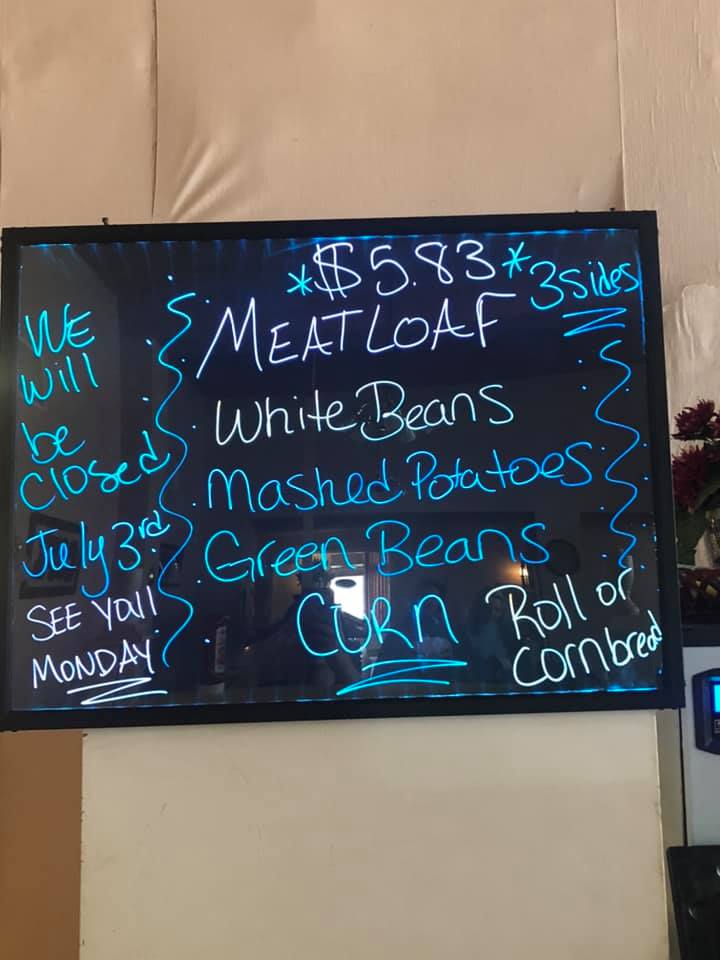 *$5.83* 3 Sides
MEATLOAF
White Beans
Mashed Potatoes
Green Beans
CORN
Roll or
Cornbread
WE
Will
be
Closed
July 3rd
SEE Yall
MONDAY